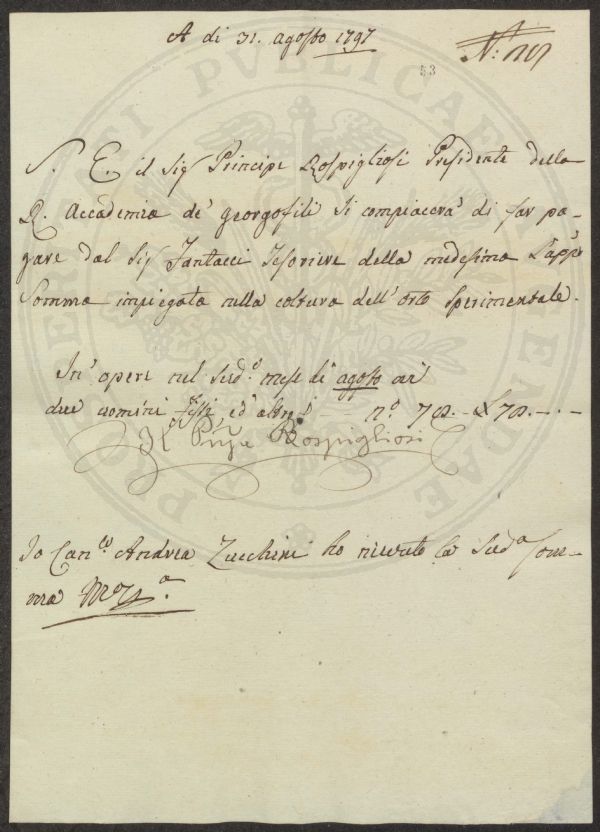 A di 31. agosto 1797
N:
53
S. E. il Sig.r Principe Rospigliosi Presidente della
R. Accademia de' Georgofili si compiacerà di far pa-
gare dal Sig.r Fantacci Tesoriere della medesima l'app.a
Somma impiegata nella coltura dell'orto Sperimentale.
In' opere nel sud.o mese di agosto ai
due uomini fissi ed' altri - n.o 78.- £ 78.-.-
Il Pnpe Rospigliosi
Io Can.co Andrea Zucchini ho ricevuto la sud.a som-
ma
PROSPERITATI PUBLICAE AUGENDAE